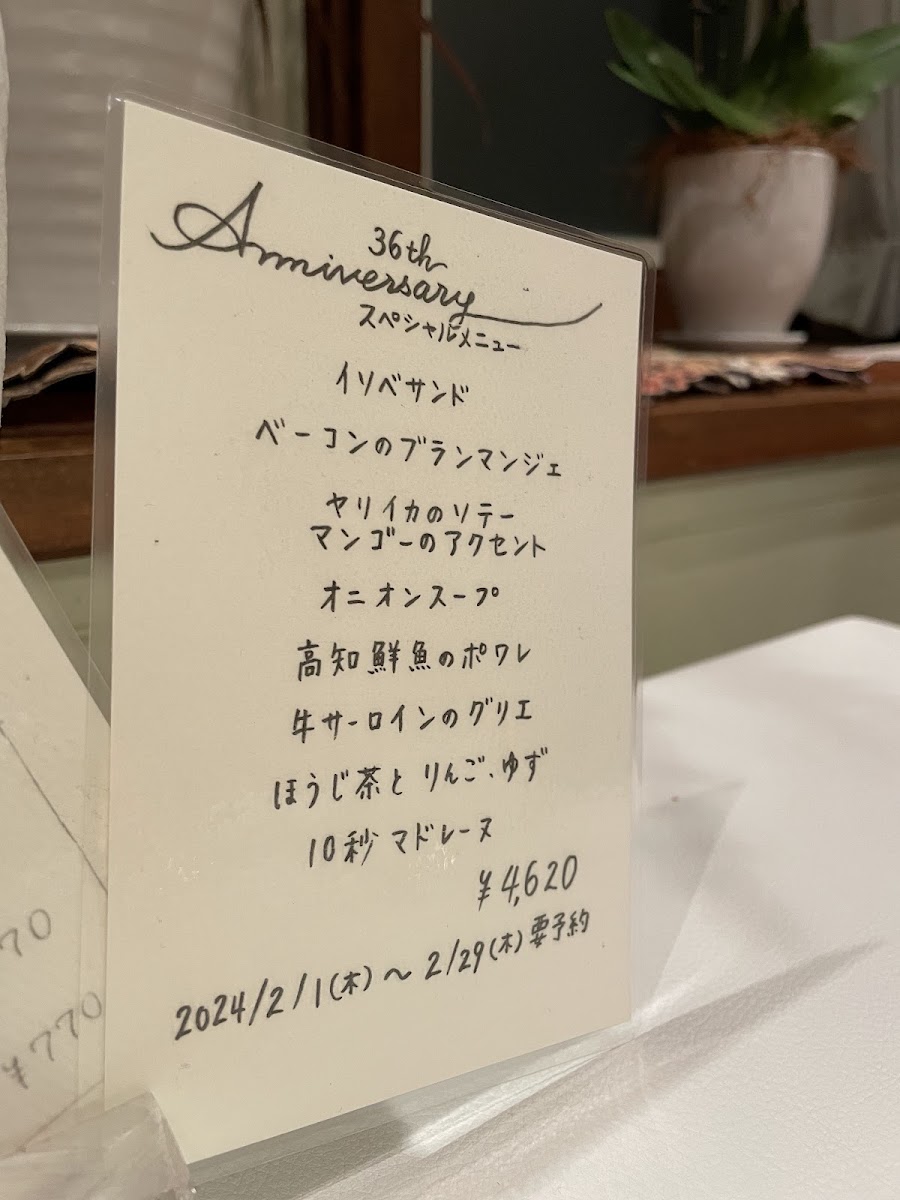 36th
Anniversary
スペシャルメニュー
イソベサンド
ベーコンのブランマンジェ
ヤリイカのソテー
マンゴーのアクセント
オニオンスープ
高知鮮魚のポワレ
牛サーロインのグリエ
ほうじ茶と りんご、ゆず
10秒マドレーヌ
¥4,620
2024/2/1(木)～2/29(木)要予約
70
¥770